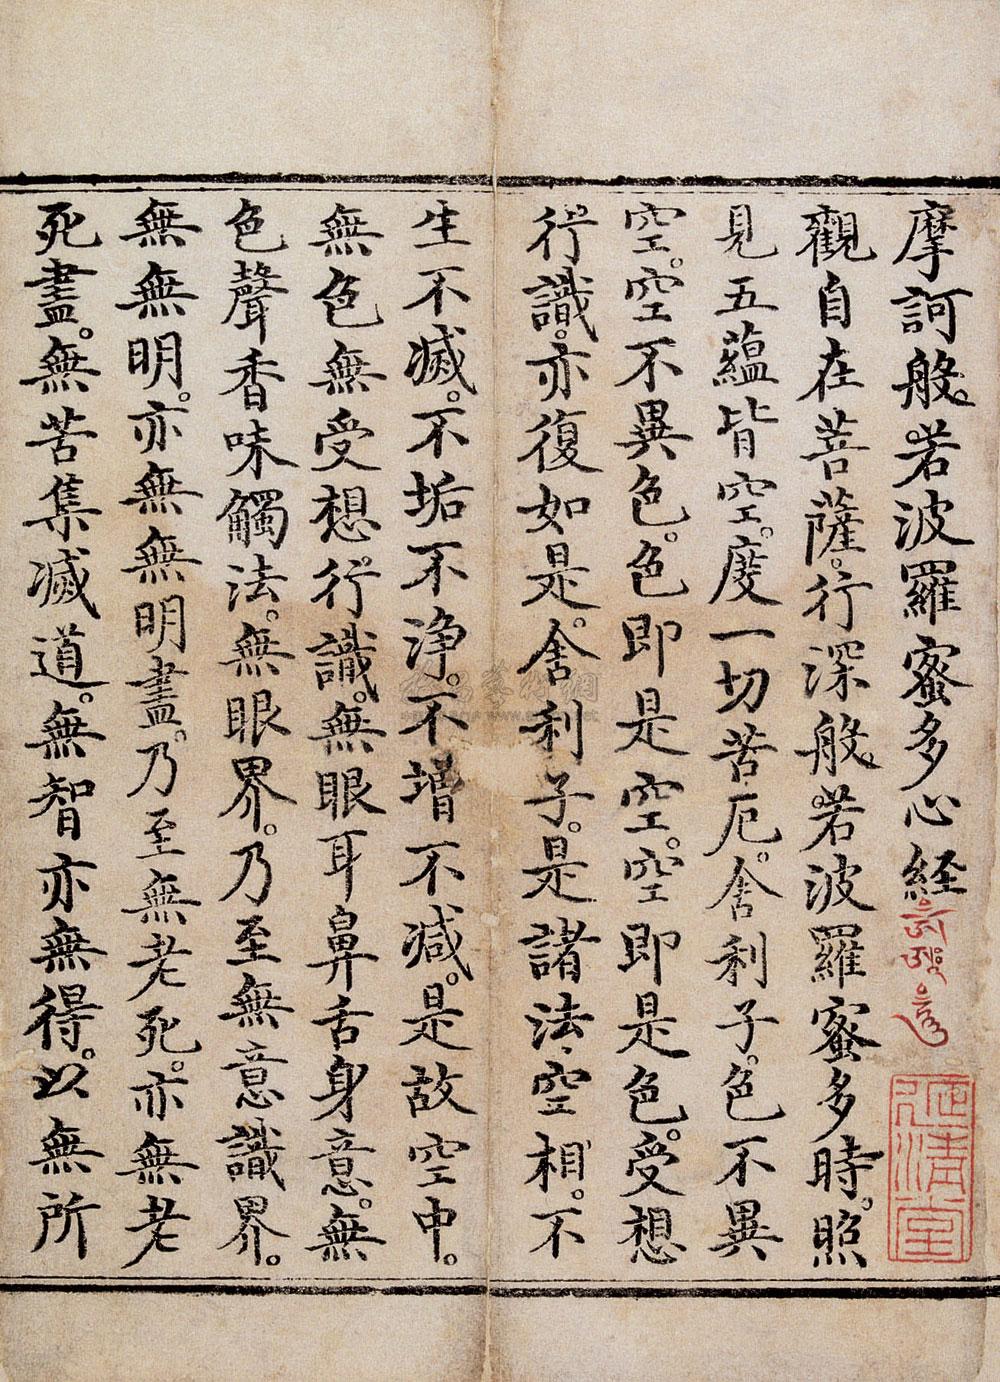 摩訶般若波羅蜜多心経
觀自在菩薩。行深般若波羅蜜多時。照
見五蘊皆空。度一切苦厄。舎利子。色不異
空。空不異色。色即是空。空即是色。受想
行識。亦復如是。舎利子。是諸法空相。不
生不滅。不垢不浄。不増不減。是故空中。
無色無受想行識。無眼耳鼻舌身意。無
色聲香味觸法。無眼界。乃至無意識界。
無無明。亦無無明盡。乃至無老死。亦無老
死盡。無苦集滅道。無智亦無得。以無所